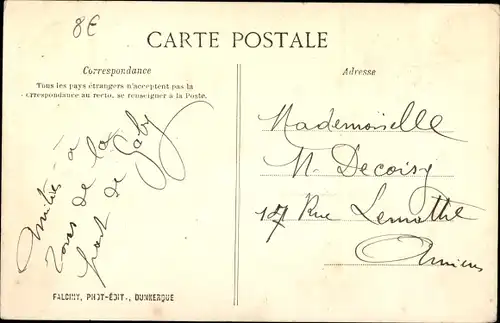 8E
CARTE POSTALE
Correspondance
Tous les pays étrangers n'acceptent pas la
correspondance au recto, se renseigner à la Poste.
Adresse
Amitiés à
tous de la
part de Gaby
Mademoiselle
M. Decoisy
17 Rue Lemothe
Amiens
FALCINY, PHOT-ÉDIT., DUNKERQUE